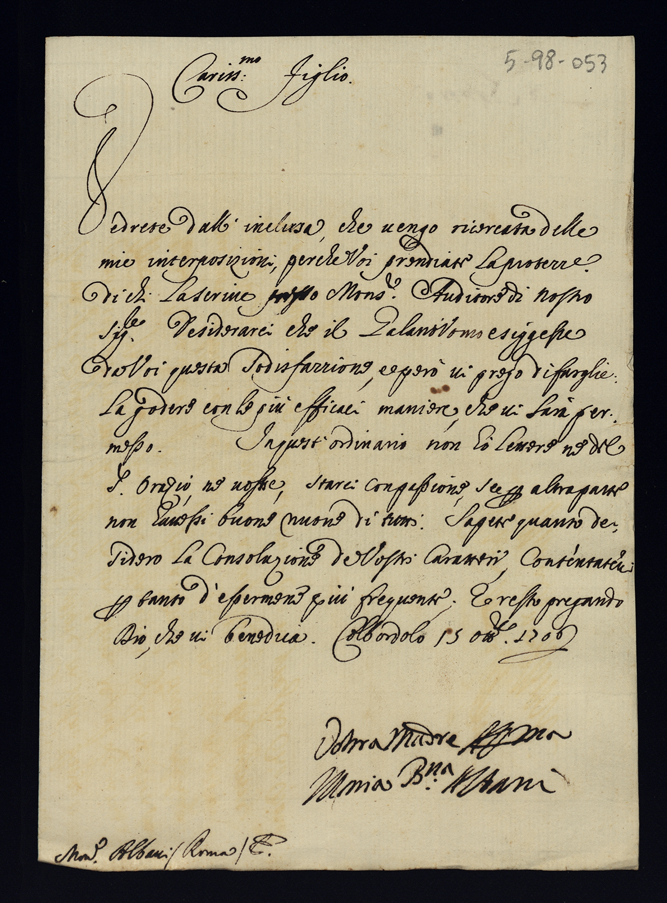 5-98-053
Cariss:mo Figlio.
Vedrete dall' inclusa, che vengo ricercata delle
mie interposizioni, perche Voi prendiate la protezze.
di chi la scrive presso Mons.r Auditore di nostro
Sig.re Desiderarei che il Galantuomo esiggesse
da Voi questa sodisfazzione, e però vi prego di farglie-
la godere con le più efficaci maniere, che vi sarà per-
messo. In quest'ordinario non hò lettere ne del
S. Orazio, ne vostre, starei con passione, se per altra parte
non havessi buone nuove di tutti. Sapete quanto de-
sidero la Consolazione de Vostri Caratteri, Contentatevi
per tanto d'essermene più frequente; E resto pregando
Dio, che vi benedica. Colbordolo 15 ott.e 1706
Vostra Madre Aff.ma
Maria B.na Albani
Mons.r Albani / Roma /